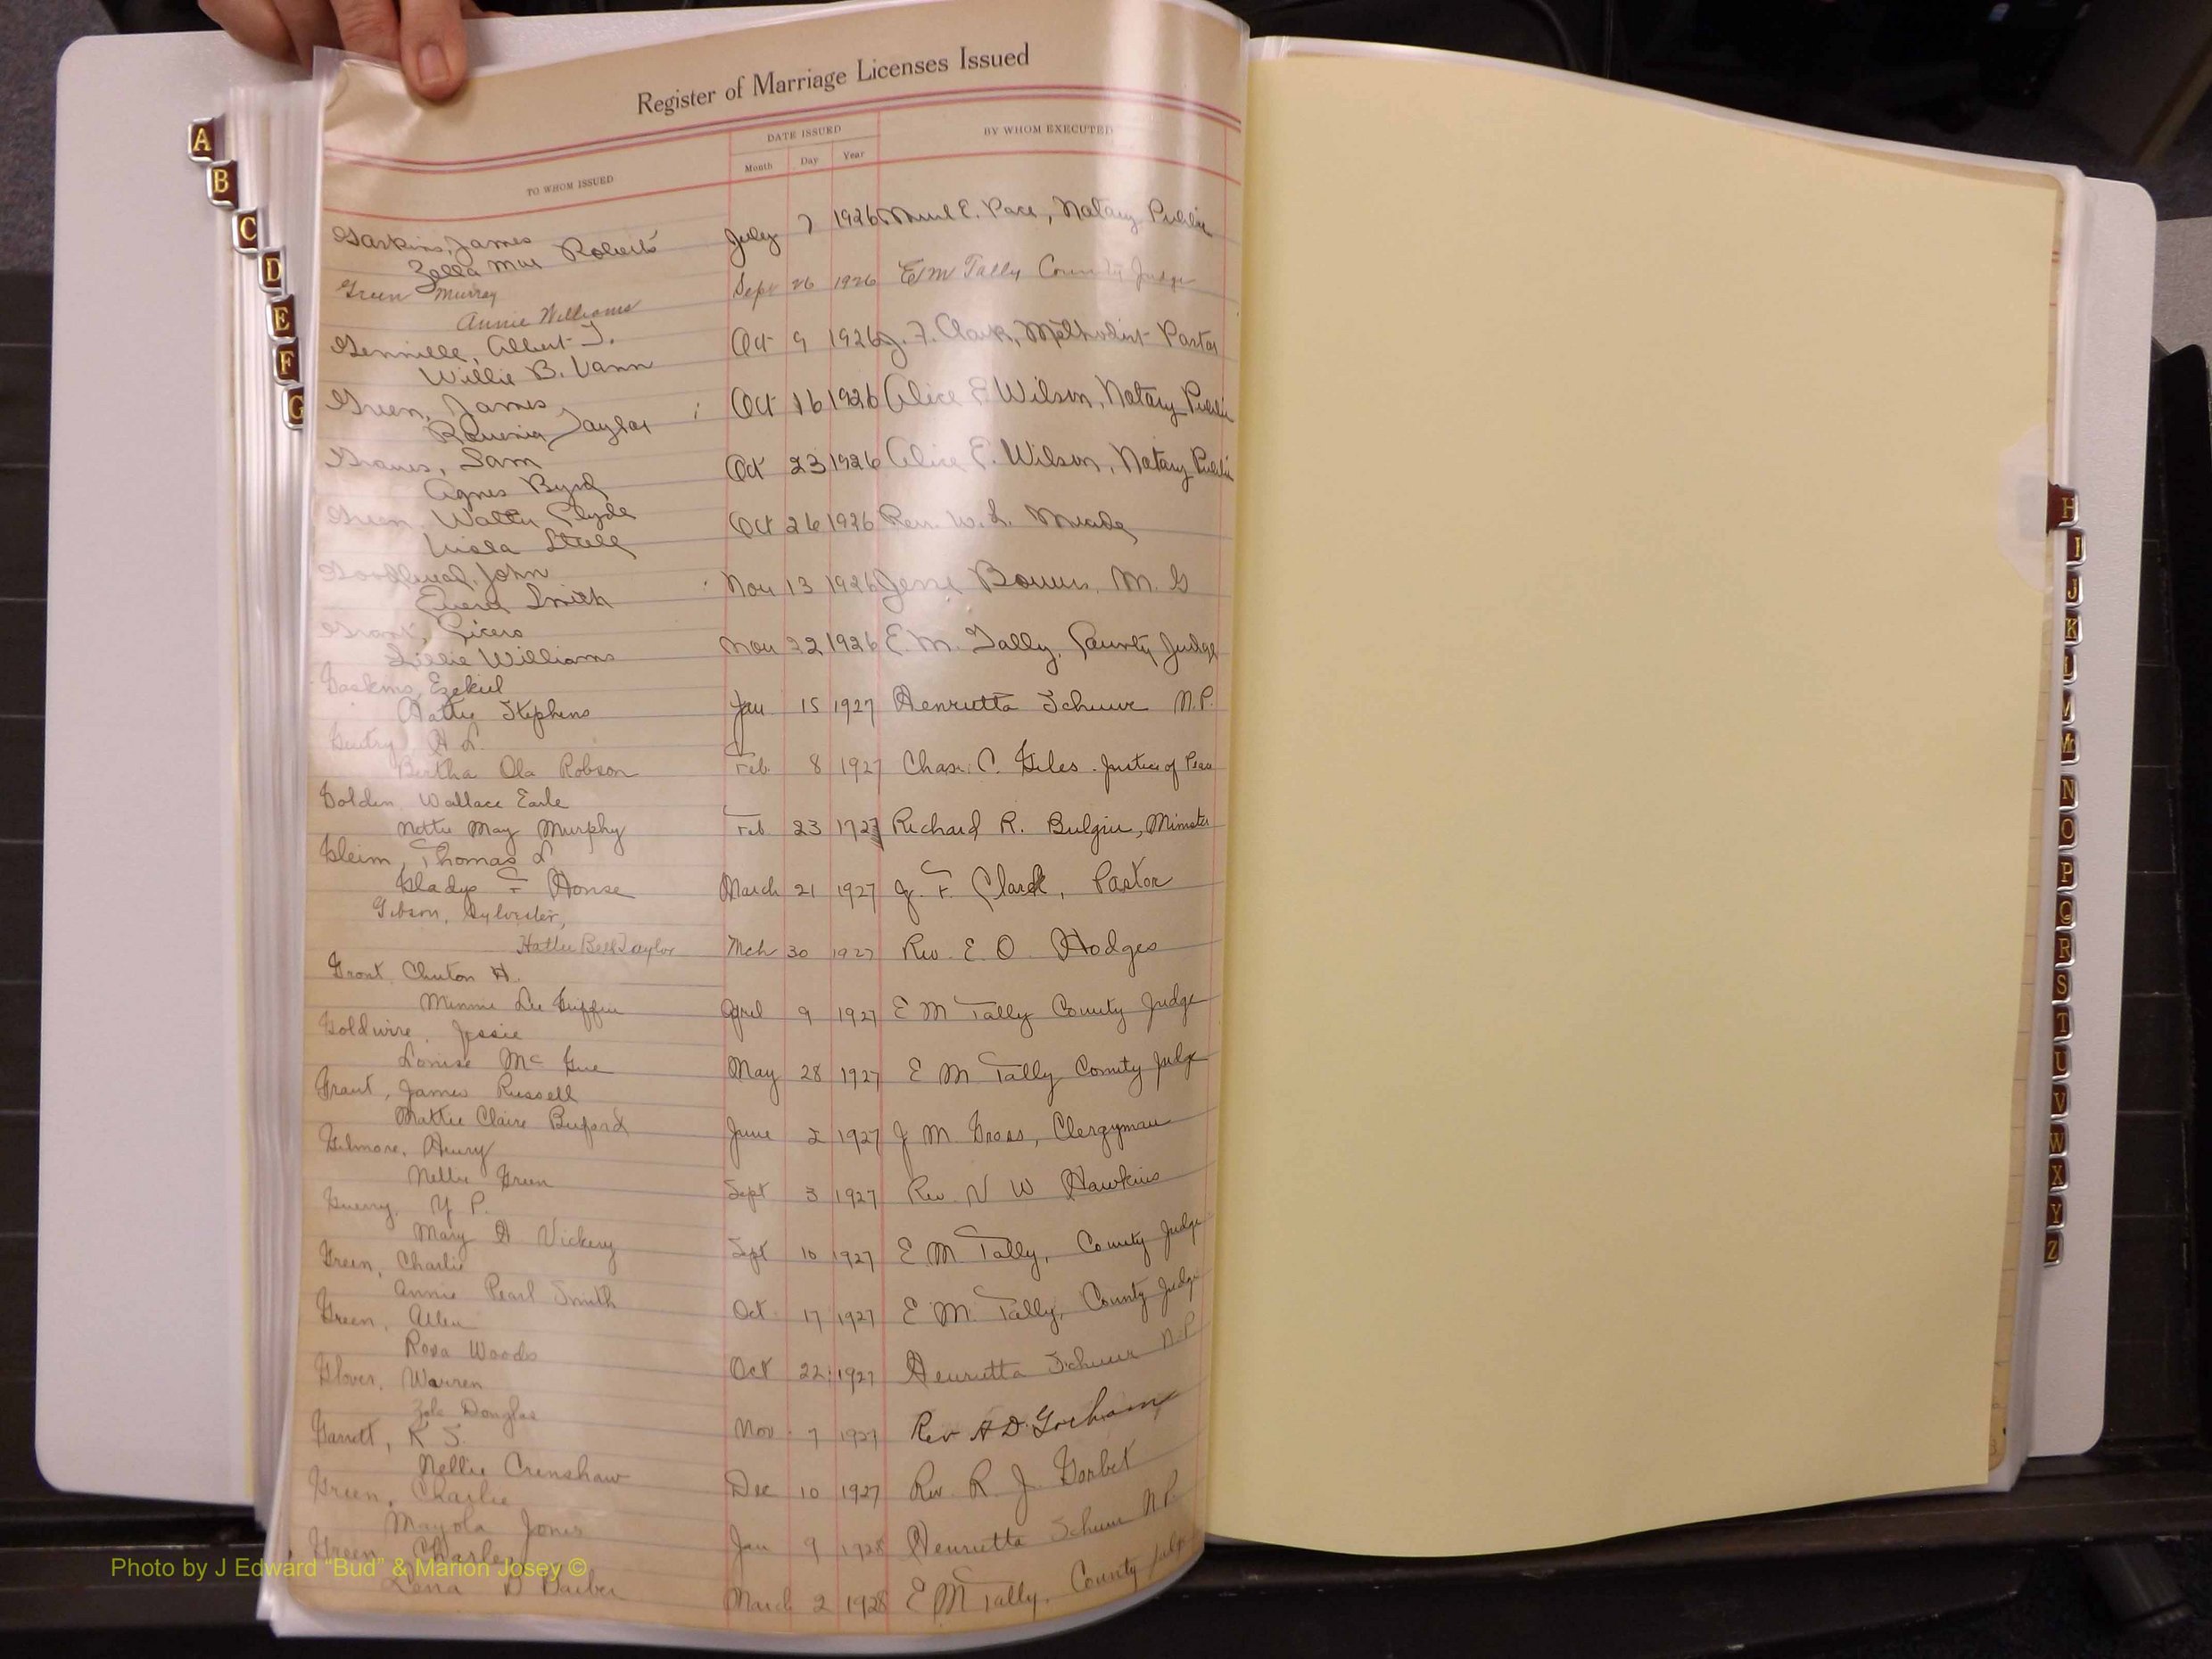 Register of Marriage Licenses Issued
TO WHOM ISSUED
DATE ISSUED
Month Day Year
BY WHOM EXECUTED
Gaskins, James July 7 1926 E. Pace, Notary Public
Zella Mae Roberts
Green Murray Sept 26 1926 E M Tally County Judge
Annie Williams
Albert J. Oct 9 1926 J. F. Clark, Methodist Pastor
Willie B. Vann
Green, James Oct 16 1926 Alice E Wilson, Notary Public
Taylor
Graves, Sam Oct 23 1926 Alice E. Wilson, Notary Public
Agnes Byrd
Green Walter Clyde Oct 26 1926 Rev. W. L.
Viola
John Nov 13 1926 Jesse M. G
Smith
Grant, Cicero Nov 22 1926 E. M. Tally, County Judge
Lillie Williams
Gaskins, Ezekiel
Hatty Stephens Jan 15 1927 Henrietta N.P.
Gentry, H L.
Bertha Ola Robson Feb. 8 1927 Chas. C. Giles. Justice of Peace
Golden Wallace Earle
Nettie May Murphy Feb. 23 1927 Richard R. Minister
Gleim, Thomas L
Gladys F House March 21 1927 J. F. Clark, Pastor
Gibson, Sylvester,
Hattie Bell Taylor Mch 30 1927 Rev. E O Hodges
Clinton H.
Minnie Lee Griffin April 9 1927 E M Tally County Judge
Goldwire, Jessie
Louise Mc May 28 1927 E M Tally County Judge
Grant, James Russell
Mattie Claire Buford June 2 1927 J M Gross, Clergyman
Gilmore, Henry
Nellie Green Sept 3 1927 Rev. N W Hawkins
Guerry, Y P.
Mary A Vickery Sept 10 1927 E. M. Tally, County Judge
Green, Charlie
Annie Pearl Smith Oct 17 1927 E M. Tally, County Judge
Green, Allen
Rosa Woods Oct 22 1927 Henrietta N.P.
Glover, Warren
Zola Douglas Nov 7 1927 Rev H D. Gorham
Garrett, K S.
Nellie Crenshaw Dec 10 1927 Rev. R. J. Gorbet
Green, Charlie
Mayola Jones Jan 9 1928 Henrietta N.P.
Green, Charley
Lena D Barber March 2 1928 E M Tally, County Judge
A
B
C
D
E
F
G
H
I
J
K
L
M
Mc
N
O
P
Q
R
S
T
U
V
W
X
Y
Z
Photo by J Edward “Bud” & Marion Josey ©